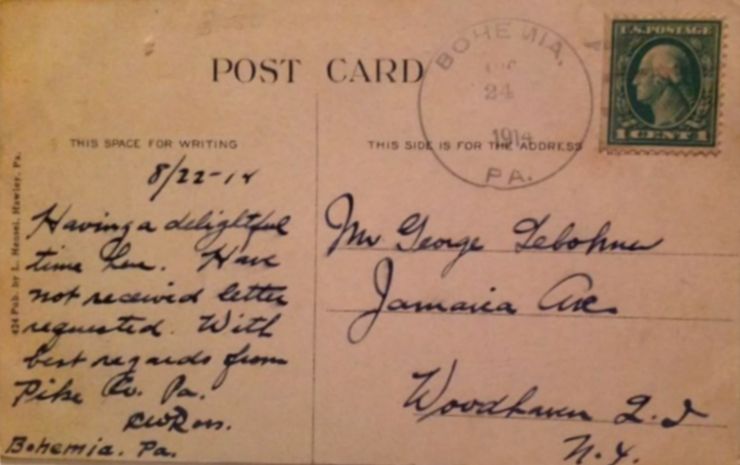 POST CARD
THIS SPACE FOR WRITING
THIS SIDE IS FOR THE ADDRESS
BOHEMIA,
24
1914
PA.
U.S. POSTAGE
1 CENT 1
424 Pub. by L. Hensel, Hawley, Pa.
8/22-14
Having a delightful
time here. Have
not received letter
requested. With
best regards from
Pike Co. Pa.
Bohemia. Pa.
Mr George
Jamaica Ave
Woodhaven L.I
N.Y.